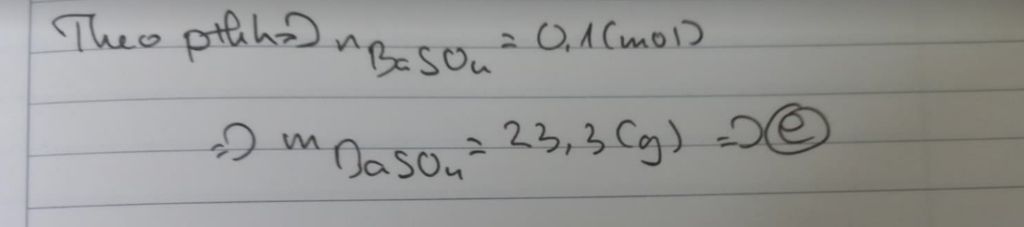 Theo pthh => nBaSO4 = 0,1 (mol)
=> mBaSO4 = 23,3 (g) => e